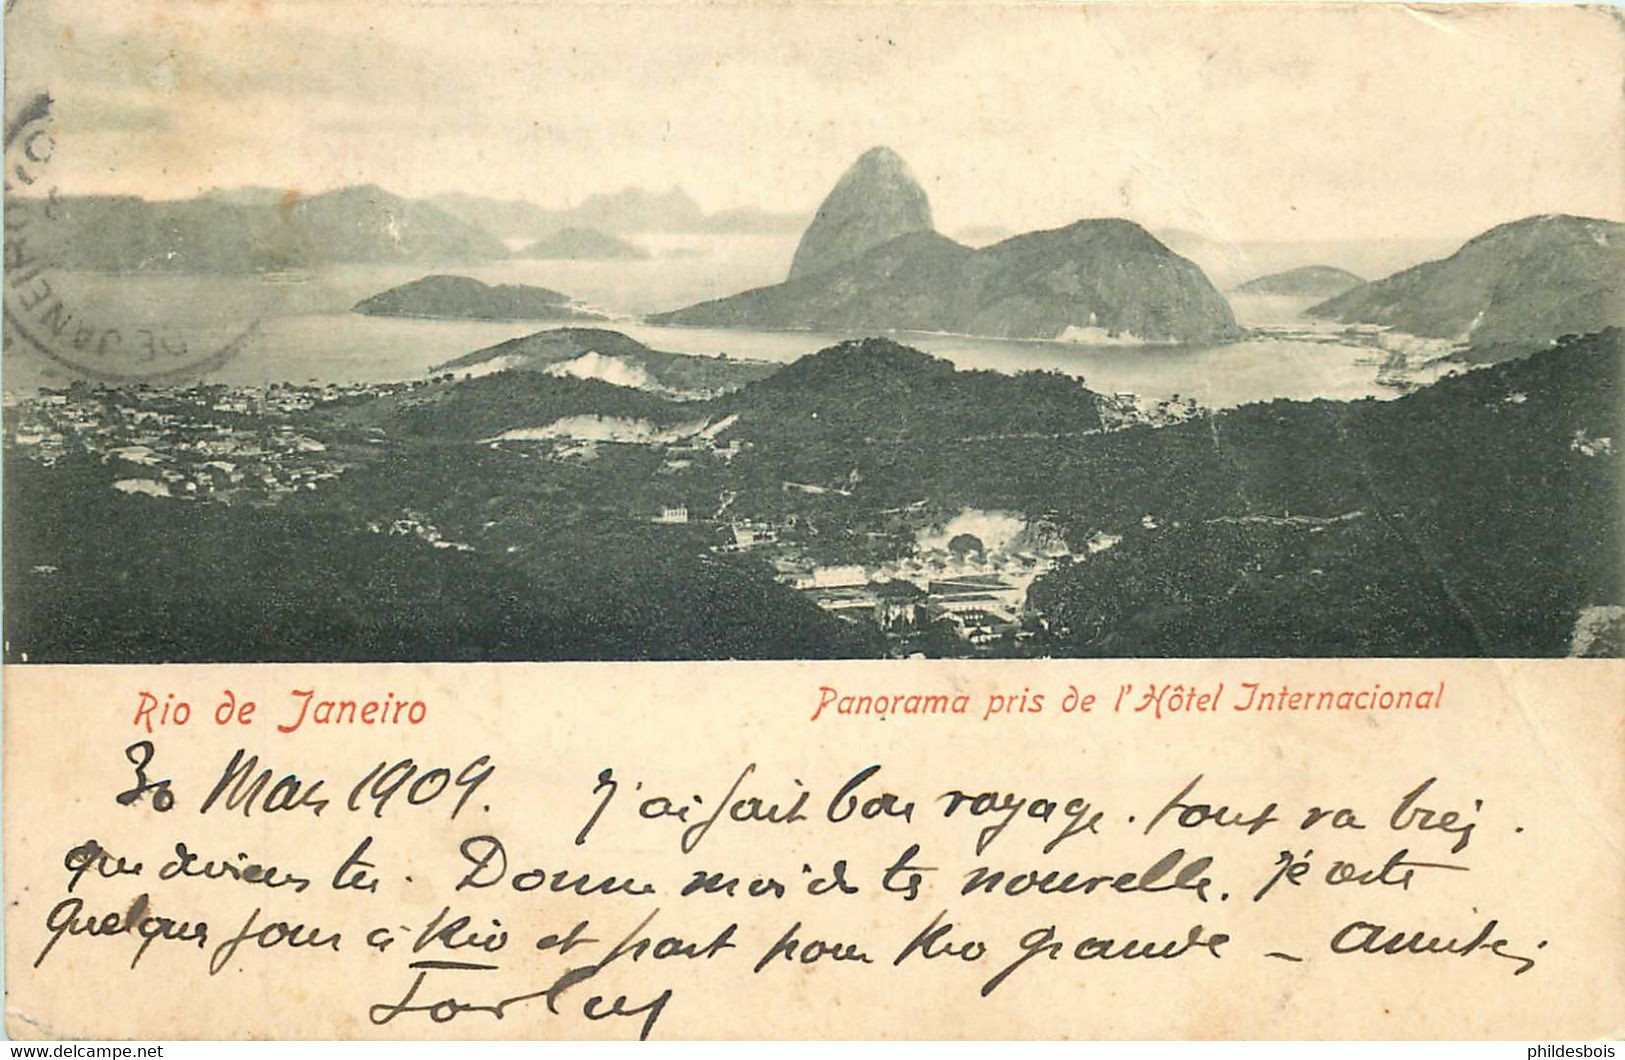 DE JANEIRO
Rio de Janeiro
Panorama pris de l'Hôtel Internacional
30 Mars 1909. J'ai fait bon voyage. tout va bien.
que deviens tu. Donne moi de tes nouvelles. Je reste
quelques jours à Rio et part pour Rio Grande - Amitiés
https://www.delcampe.net
phildesbois